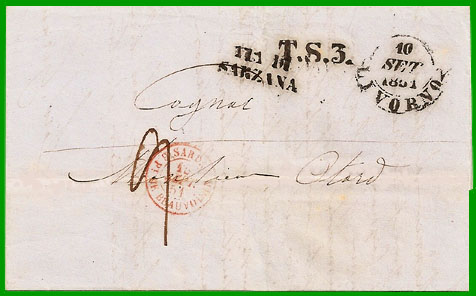 T.S.3.
VIA DI
SARZANA
10
SET
1851
LIVORNO
Cognac
Monsieur Otard
9